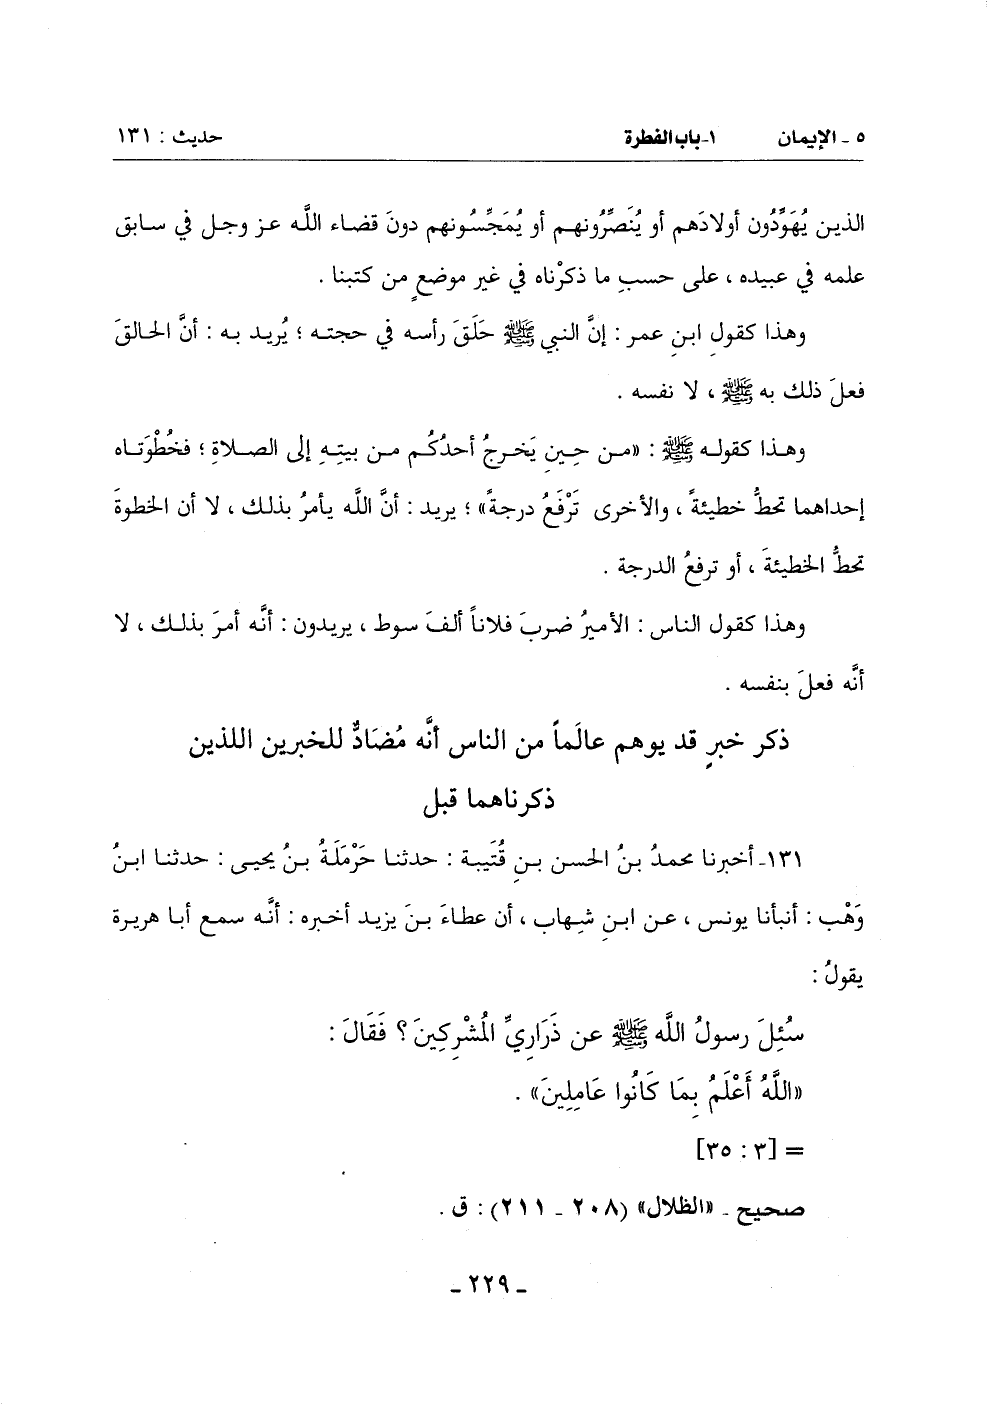 ٥ ـ الإيمان ١-باب الفطرة حديث : ١٣١
الذين يُهَوِّدُون أولادَهم أو يُنَصِّرُونهم أو يُمَجِّسُونهم دونَ قضاء اللَّه عز وجل في سابق
علمه في عبيده ، على حسبِ ما ذكرْناه في غير موضعٍ من كتبنا .
وهذا كقولِ ابنِ عمر : إنَّ النبي ﷺ حَلَقَ رأسه في حجته ؛ يُريد به : أنَّ الحالقَ
فعلَ ذلك به ﷺ ، لا نفسه .
وهذا كقوله ﷺ : «من حِينِ يَخرجُ أحدُكُم من بيتِهِ إلى الصلاةِ ؛ فخُطْوَتاه
إحداهما تحطُّ خطيئةً ، والأخرى تَرْفَعُ درجةً» ؛ يريد : أنَّ اللَّه يأمرُ بذلك ، لا أن الخطوةَ
تحطُّ الخطيئةَ ، أو ترفعُ الدرجة .
وهذا كقول الناس : الأميرُ ضربَ فلاناً ألفَ سوط ، يريدون : أنَّه أمرَ بذلك ، لا
أنَّه فعلَ بنفسه .
ذكر خبرٍ قد يوهم عالَماً من الناس أنَّه مُضَادٌّ للخبرين اللذين
ذكرناهما قبل
١٣١ـ أخبرنا محمدُ بنُ الحسن بنِ قُتَيبة : حدثنا حَرْمَلَةُ بنُ يحيى : حدثنا ابنُ
وَهْب : أنبأنا يونس ، عن ابنِ شِهاب ، أن عطاءَ بنَ يزيد أخبره : أنَّه سمع أبا هريرة
يقولُ :
سُئِلَ رسولُ اللَّه ﷺ عن ذَرَارِيِّ المُشْرِكِينَ ؟ فَقَالَ :
«اللَّهُ أَعْلَمُ بِمَا كَانُوا عَامِلِينَ» .
= [٣ : ٣٥]
صحيح ـ «الظلال» (٢٠٨ ـ ٢١١) : ق .
ـ ٢٢٩ ـ